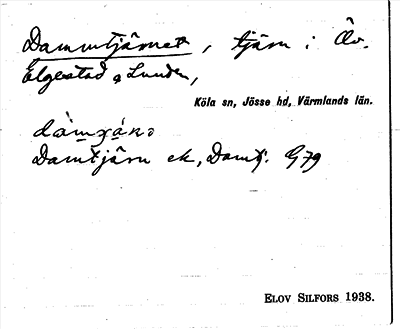 Dammtjärnet, tjärn i Öv.
Elgestad o Lunden,
Köla sn, Jösse hd, Värmlands län.
Damtjärn ek, Damtj. G79
ELOV SILFORS 1938.